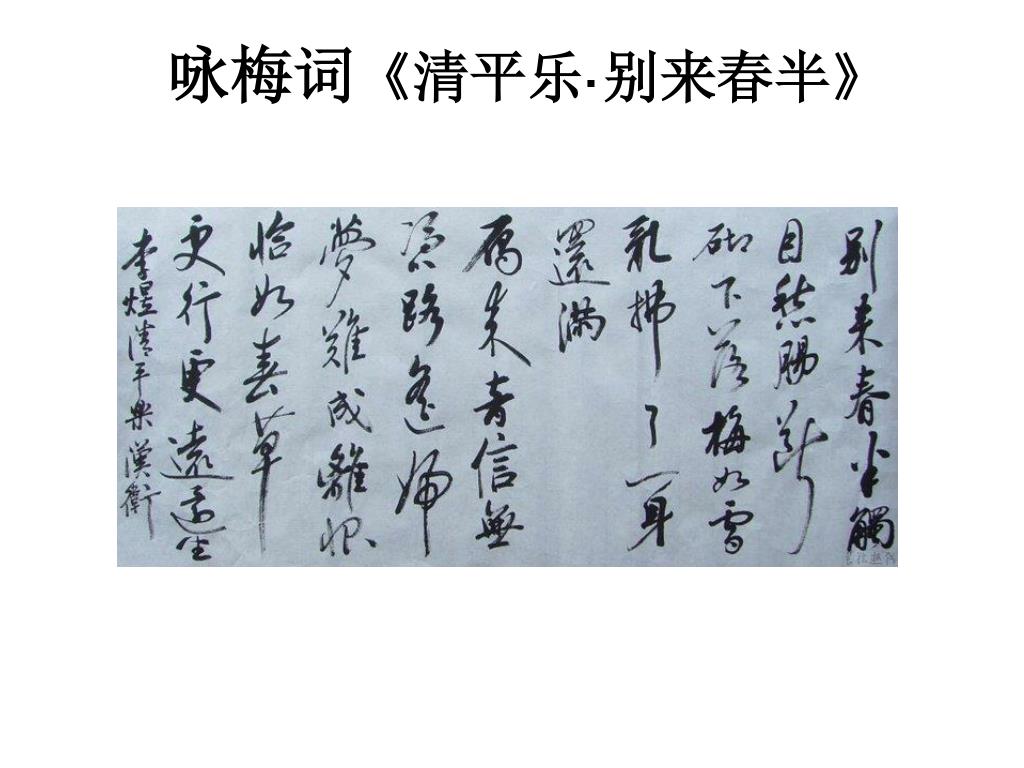 咏梅词《清平乐·别来春半》
别来春半觸
目愁腸斷
砌下落梅如雪
乱拂了一身
還滿
雁来音信無
憑路遥歸
夢難成離恨
恰如春草
更行更遠還生
李煜清平樂漢衛